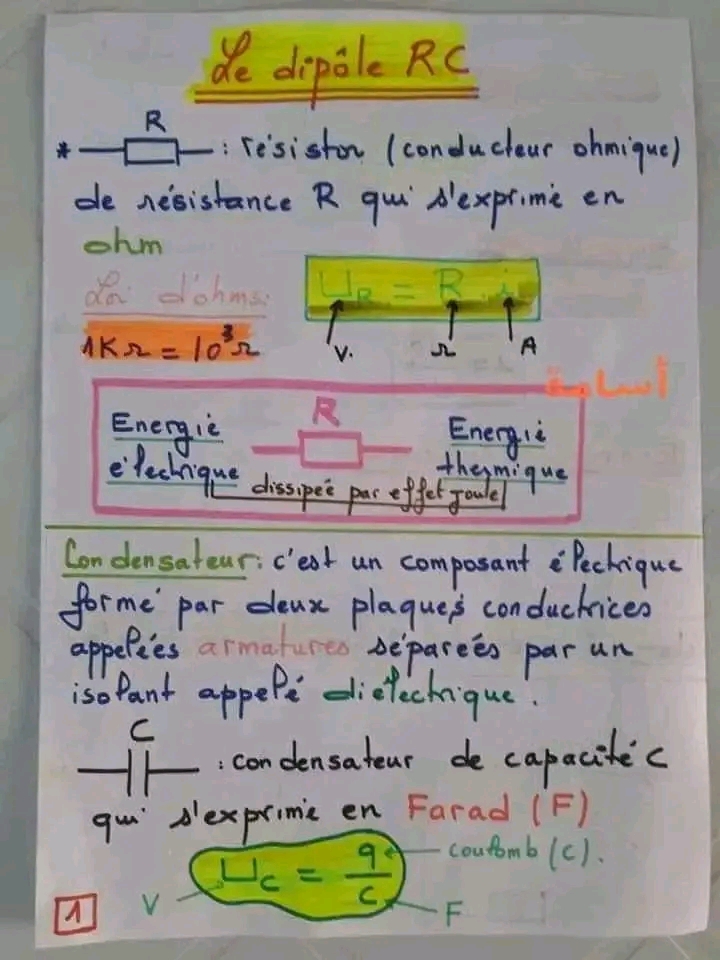 Le dipôle RC
R
* : résistor (conducteur ohmique)
de résistance R qui s'exprime en
ohm
Loi d'ohms:
U_R = R . i
1KΩ = 10³Ω
V. Ω A
أسامة
Energie
électrique
R
Energie
thermique
dissipée par effet joule
Condensateur: c'est un composant électrique
formé par deux plaques conductrices
appelées armatures séparées par un
isolant appelé diélectrique.
C
: condensateur de capacité C
qui s'exprime en Farad (F)
U_C = q/C
coulomb (C).
V
F
1